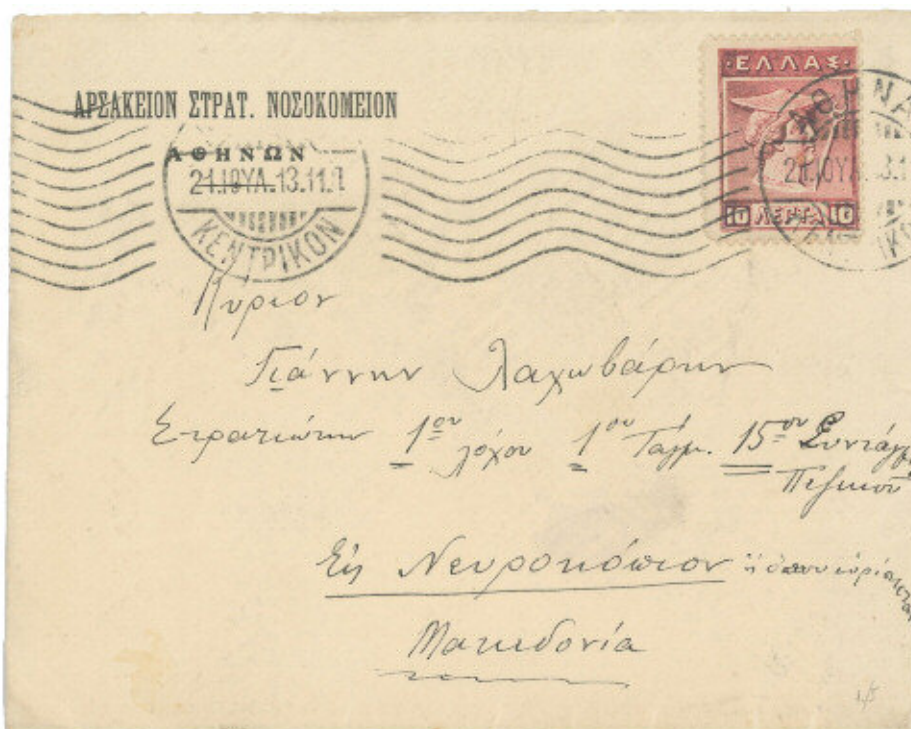 ΑΡΣΑΚΕΙΟΝ ΣΤΡΑΤ. ΝΟΣΟΚΟΜΕΙΟΝ
ΑΘΗΝΩΝ
21.ΙΟΥΛ.13.11.
ΚΕΝΤΡΙΚΟΝ
ΕΛΛΑΣ
10 ΛΕΠΤΑ 10
Κύριον
Γιάννην Λαχωβάρην
Στρατιώτην 1ου λόχου 1ου Τάγμ. 15ου Συντάγμ
Πεζικού
Εις Νευροκόπιον ή όπου ευρίσκεται
Μακεδονία